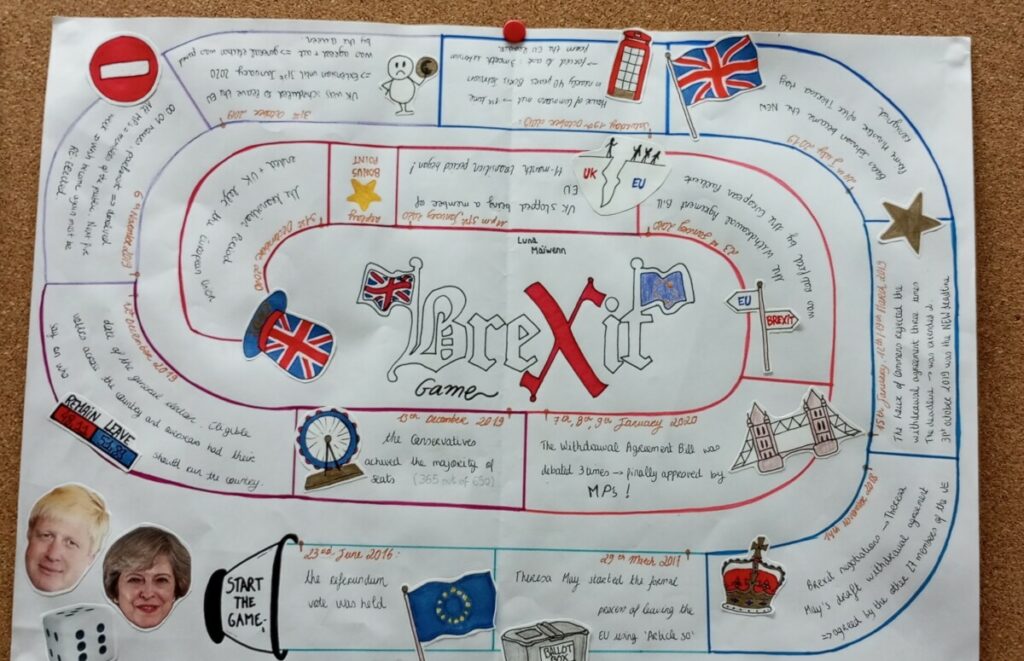 START
THE
GAME
23rd June 2016:
the referendum
vote was held
29th March 2017
Theresa May started the formal
process of leaving the
EU using 'Article 50'
BALLOT
BOX
14th November 2018
Brexit negotiations → Theresa
May's draft withdrawal agreement
⇒ agreed by the other 27 members of the UE
15th January, 12th / 19th March 2019
The House of Commons rejected the
withdrawal agreement three times
The deadline → was extended 2
31st october 2019 was the NEW deadline
24th July 2019
Boris Johnson became the NEW
Prime Minister after Theresa May
resigned
Saturday 19th october 2019:
House of Commons met → 1st time
in nearly 40 years Boris Johnson
→ forced to ask 3 month extension
from the EU
31st october 2019
UK was scheduled to leave the EU
⇒ Extension until 31st January 2020
was agreed + act ⇒ general election was passed
by the Queen
6th November 2019
All MPs = members of the public
were
RE ELECTED
12th December 2019
date of the general election. Eligible
voters across the country and overseas had their
say on who should run the country.
REMAIN LEAVE
13th December 2019
the Conservatives
achieved the majority of
seats (365 out of 650)
7th, 8th, 9th January 2020
The Withdrawal Agreement Bill was
debated 3 times → finally approved by
MPs !
EU
BREXIT
23rd January 2020
the Withdrawal Agreement Bill
was ratified by the European Parliament
UK
EU
11 p.m 31st January 2020
UK stopped being a member of
EU
11-month transition period began!
BONUS
POINT
31st December 2020
the transition period
ended + UK left the European Union
Luna
Maïwenn
BreXit
Game